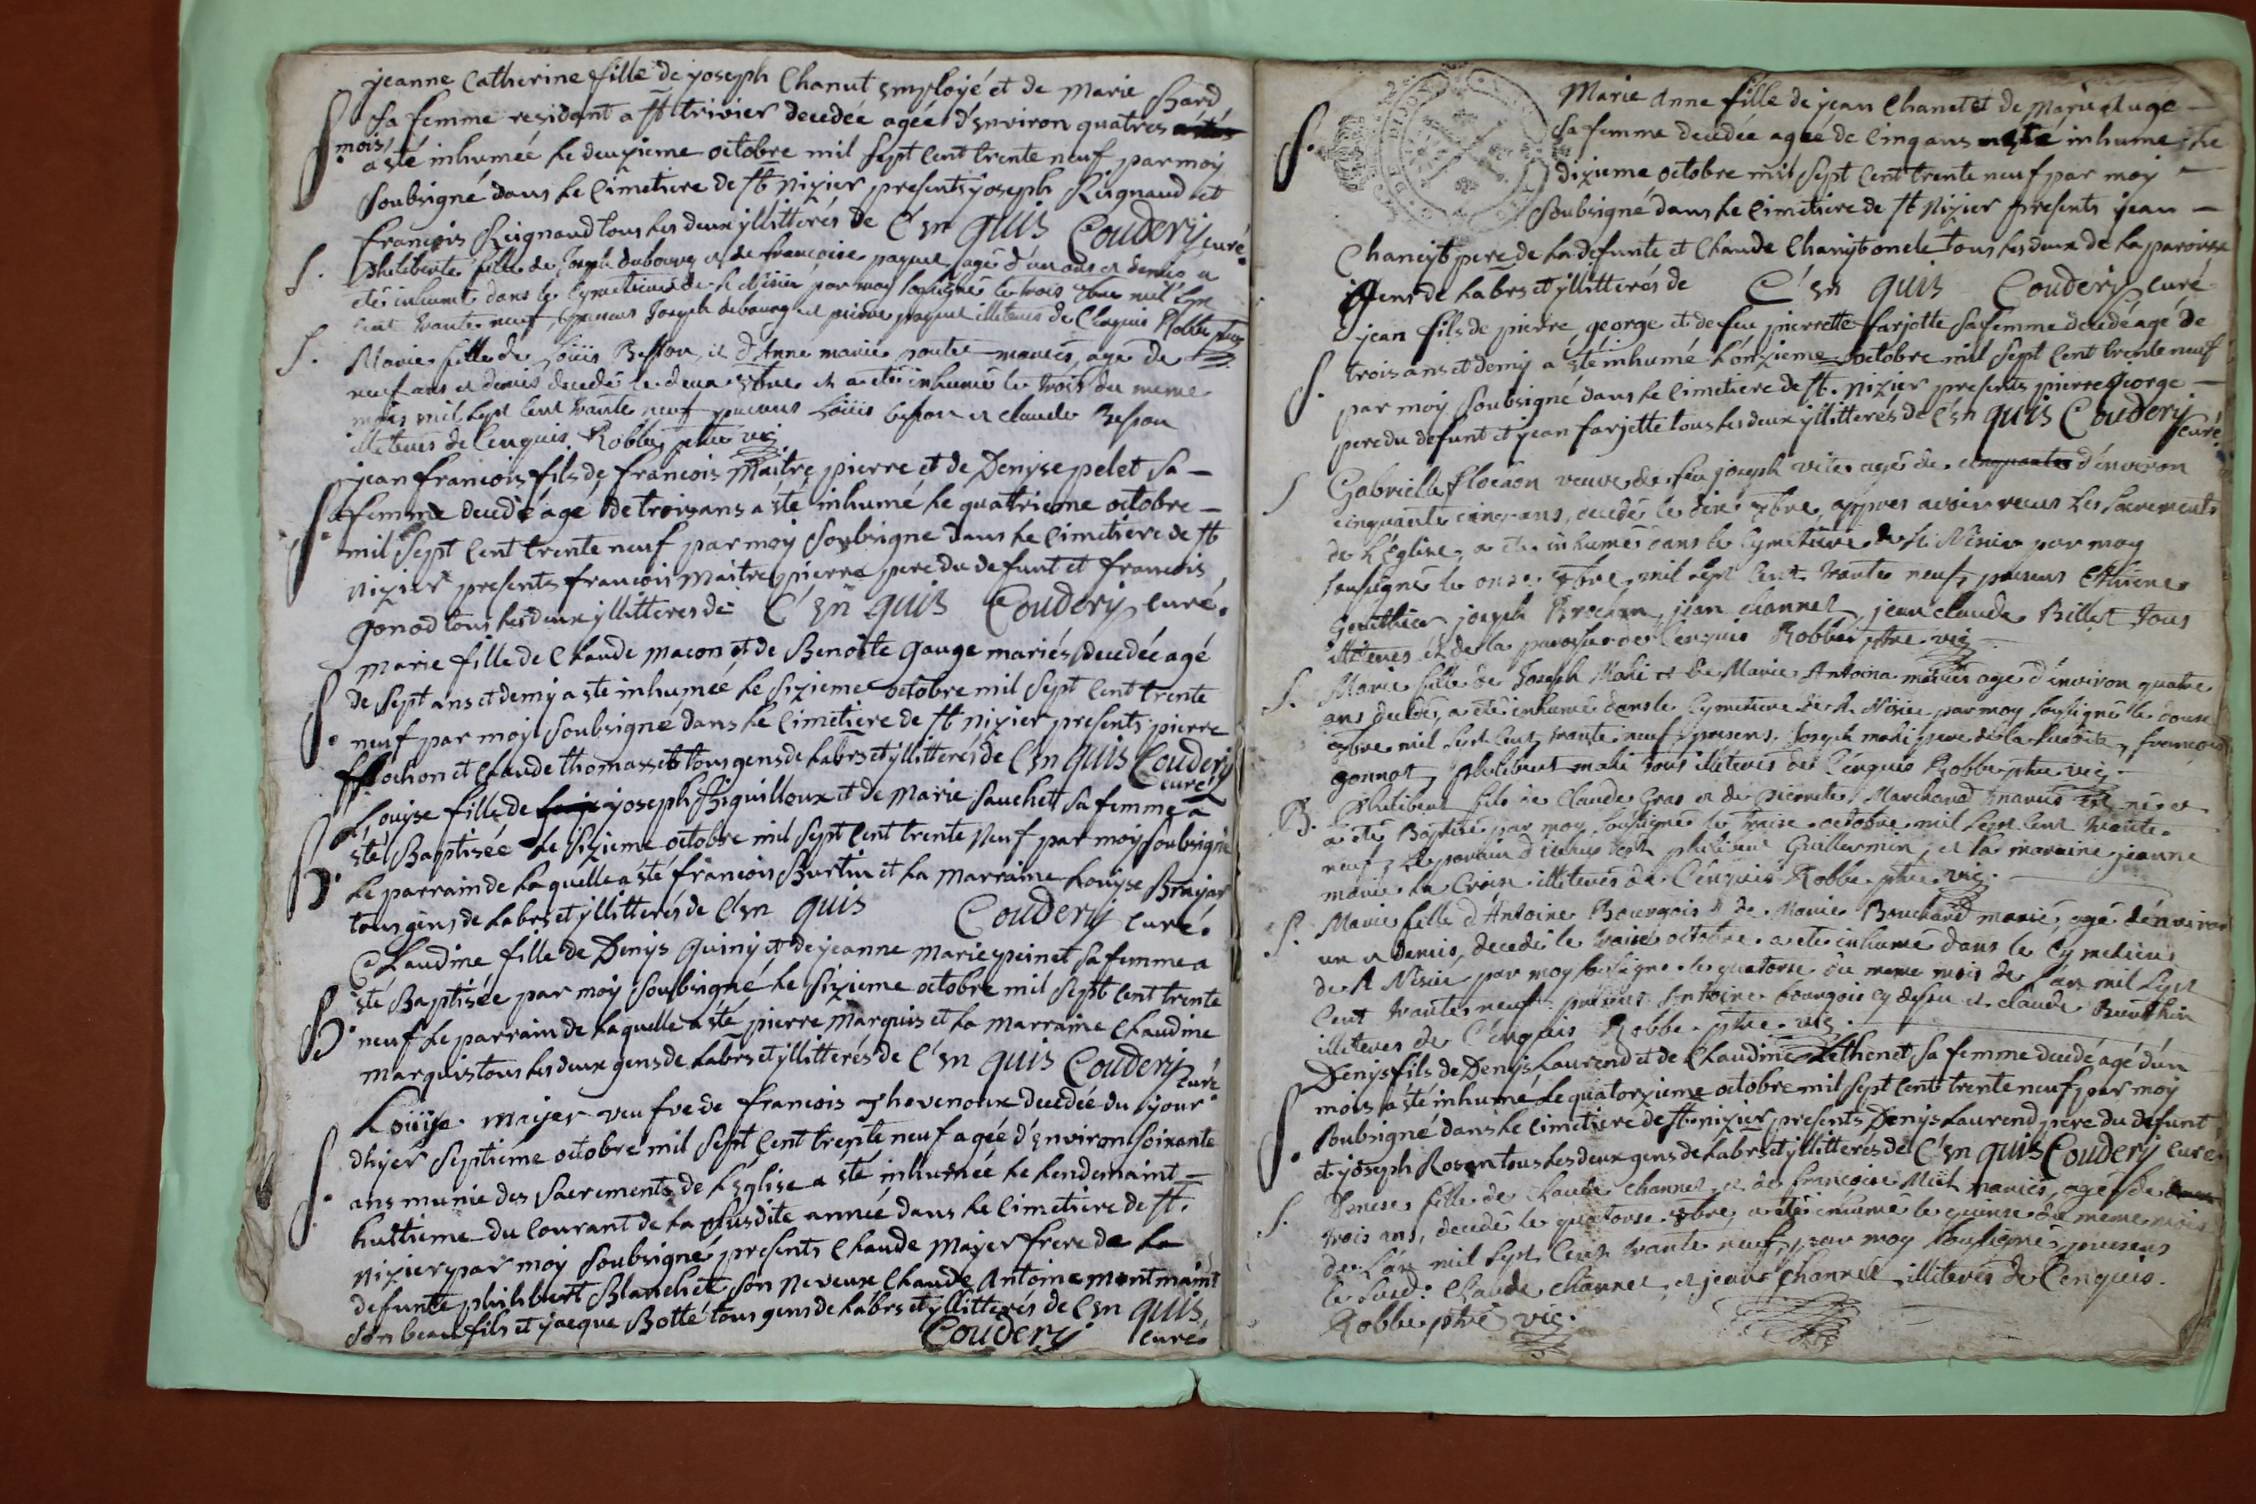 jeanne Catherine fille de joseph Chanut Employé et de Marie Bard
S. sa femme residant a St trivier decedée agée d'Environ quatres
mois a été inhumée le deuxieme octobre mil sept cent trente neuf par moy
soubsigné dans le Cimetiere de St Nizier presents joseph Reignaud et
francois Reignaud tous les deux yllitterés de C'En quis Coudery curé.
S. philiberte fille de Joseph dubourg et de francoise paquet agé d'un ans et demis a
eté inhumé dans le Cymetiere de St Nisier par moy sousigné le trois 8bre mil sept
cent trante neuf, presens Joseph dubourg et pierre paquet illiterés de C'enquis Robbe ptre
S. Marie fille de Loüis Besson et d'Anne marie poulet mariés, agé de
neuf ans et demis decedé le deux 8bre et a eté inhumé le trois du meme
mois mil sept cent trante neuf presens Loüis besson et claude Besson
illiterés de C'enquis Robbe ptre vic.
jean francois fils de francois Maitre pierre et de Denyse pelet sa
S. femme decedé agé de trois ans a été inhumé le quatrieme octobre
mil sept cent trente neuf par moy soubsigné dans le Cimetiere de St
Nizier presents francois Maitre pierre pere du defunt et francois
gonod tous les deux yllitteres de C'En quis Coudery curé.
Marie fille de Claude Macon et de Benoite gauge mariés decedée agé
S. de sept ans et demy a été inhumée le sizieme octobre mil sept cent trente
neuf par moy soubsigné dans le Cimetiere de St Nizier presents pierre
fflochon et Claude thomasset tous gens de Labrs et yllitterés de C'En quis Coudery
curé
Louyse fille de joseph Broquilloux et de Marie Sauchet sa femme a
B. été Baptisée le sizieme octobre mil sept cent trente neuf par moy soubsigné
le parrain de laquelle a été francois Burtin et la Marraine Louyse Brayar
tous gens de labrs et yllitterés de C'En quis Coudery curé.
Claudine fille de Denys Quiny et de jeanne Marie peinet sa femme a
B. été Baptisée par moy soubsigné le sizieme octobre mil sept cent trente
neuf le parrain de laquelle a été pierre Marquis et la Marraine Claudine
marquis tous les deux gens de labrs et yllitterés de C'En quis Coudery curé
Loüise Mayer veufve de francois Thevenoux decedée du jour
S. dhyer septieme octobre mil sept cent trente neuf agée d'Environ soixante
ans munie des Sacrements de L'Eglise a été inhumée le lendemaint
huttieme du courant de la susdite année dans le Cimetiere de St.
Nizier par moy soubsigné presents Claude Mayer frere de la
defunte philibert Blanchet son Neveux Claude Antoine montmaint
son beau fils et jacque Botté tous gens de labrs et yllitterés de C'En quis
Coudery curé
Marie Anne fille de jean Chanet et de Marie Augé
S. sa femme decedée agée de Cinq ans a été inhumé le
dixieme octobre mil sept cent trente neuf par moy
soubsigné dans le Cimetiere de St Nizier presents jean
Chaneyt pere de la defunte et Claude Chaneyt oncle tous les deux de la paroisse
gens de labrs et yllitterés de C'En quis Coudery curé
jean fils de pierre george et de feu pierrette farjotte sa femme decedé agé de
S. trois ans et demy a été inhumé L'onzieme octobre mil sept cent trente neuf
par moy soubsigné dans le Cimetiere de St. Nizier presents pierre George
pere du defunt et jean farjette tous les deux yllitterés de C'En quis Coudery
curé
S Gabrielle flochon veuve de feu joseph vite agé de d'environ
cinquante cinq ans, decedé le dix 8bre, appres avoir receus les sacrements
de L'Eglise, a eté inhumé dans le Cymetiere de St Nisier par moy
sousigné le onze 8bre, mil sept cent trante neuf, presens Ethiene
Gouthier joseph Brochon, jean channet, jean claude Billet tous
illiterés et de la paroisse de C'enquis Robbe ptre vic
S. Marie fille de Joseph Mahi et de Marie Antoina mariés agé d'environ quatre
ans decedé, a eté inhumé dans le Cymetiere de St Nisier par moy sousigné le douse
8bre mil sept cent trante neuf, presens, Joseph mahi pere de la susdite, francois
gonnot, philibert mahi tous illiterés de C'enquis Robbe ptre vic.
B. Philibert fils de Claude Gras et de Pierrette Marchand mariés né et
a eté Baptisé par moy sousigné le treise octobre mil sept cent trante
neuf, le parrain d'icelui est philibert Guillermin, et la maraine jeanne
marie la Croix illiterés de C'enquis Robbe ptre vic.
S. Marie fille d'Antoine Bourgois et de Marie Bouchard mariés, agé d'environ
un et demis, decedé le treise octobre a eté inhumé dans le Cymetiere
de St Nisier par moy sousigné le quatorse du meme mois de l'an mil sept
cent trante neuf presens Antoine bourgois cy dessu et claude Bouthier
illiteres de C'enquis Robbe ptre vic.
Denys fils de Denys Laurend et de Claudine Lethenet sa femme decedé agé d'un
mois a été inhumé le quatorzieme octobre mil sept cent trente neuf par moy
S. soubsigné dans le Cimetiere de St nizier presents Denys Laurend pere du defunt
et joseph Rosan tous les deux gens de labrs et yllitterés de C'En quis Coudery curé.
S. Denise fille de Claude channet et de francoise Mich mariés, agé de
trois ans, decedé le quatorse 8bre, a eté inhumé le quinse du meme mois
de L'an mil sept cent trante neuf, par moy sousigné, presens
le susd: Claude channet, et jean channet illiterés de C'enquis.
Robbe ptre vic.